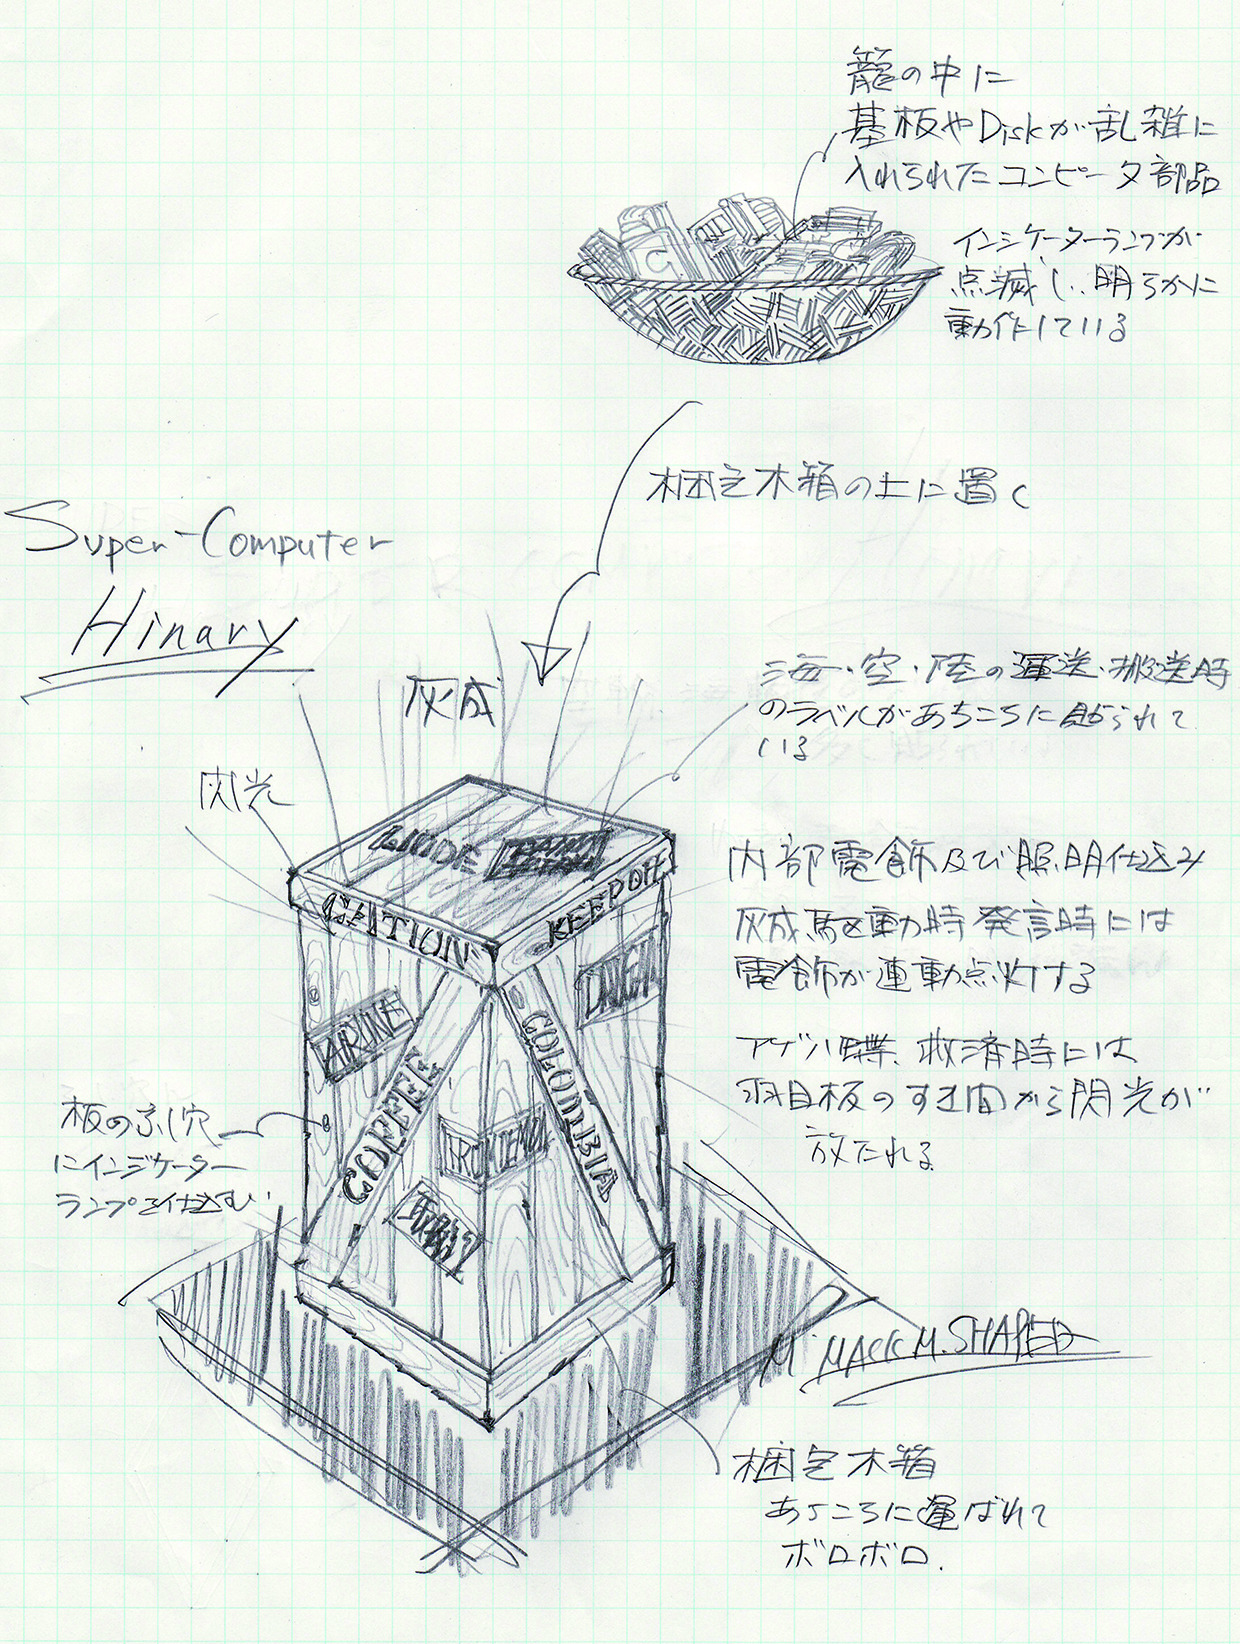 籠の中に
基板やDiskが乱雑に
入れられたコンピータ部品
インジケーターランプが
点滅し、明らかに
動作している
梱包木箱の上に置く
Super-Computer
Hinary
灰成
閃光
海・空・陸の運送・搬送時
のラベルがあちこちに貼られて
いる
内部電飾及び照明仕込み
灰成駆動時発言時には
電飾が連動点灯する
アゲハ蝶、救済時には
羽目板のすき間から閃光が
放たれる
CAUTION
KEEP OFF
AIRLINE
COFFEE
COLOMBIA
板のふし穴
にインジケーター
ランプを仕込む
梱包木箱
あちこちに運ばれて
ボロボロ.